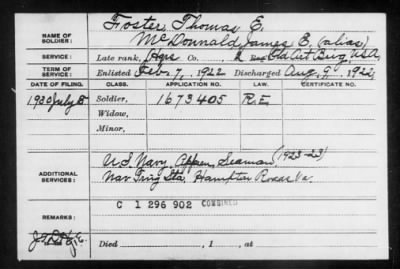 Foster, Thomas E.
NAME OF SOLDIER: McDonnald, James E. (alias)
SERVICE: Late rank, Hqrs Co. 2 Cld Art Brig, U.S.A.
TERM OF SERVICE: Enlisted Feb. 7, 1922 Discharged Aug. 9, 1922
DATE OF FILING. CLASS. APPLICATION NO. LAW. CERTIFICATE NO.
1930 July 8 Soldier, 1673405 R.E.
Widow,
Minor,
U.S. Navy, Appren, Seaman (1923-23)
ADDITIONAL SERVICES: Nav Trng Sta. Hampton Roads Va.
C 1 296 902 COMBINED
REMARKS:
Died , 1 , at